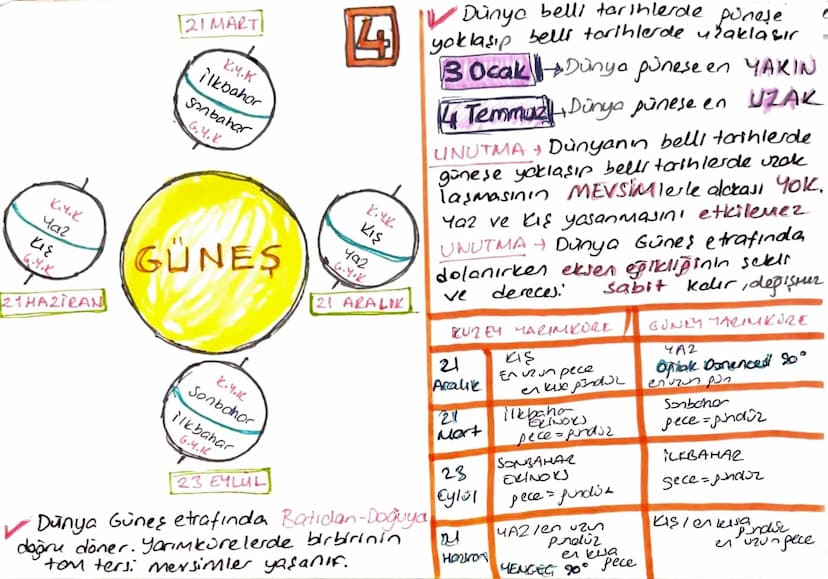 21 MART
K.Y.K
ilkbahar
Sonbahar
G.Y.K
K.Y.K
Yaz
Kış
G.Y.K
21 HAZİRAN
GÜNEŞ
K.Y.K
Kış
Yaz
G.Y.K
21 ARALIK
K.Y.K
Sonbahar
İlkbahar
G.Y.K
23 EYLÜL
✓ Dünya Güneş etrafında Batıdan-Doğuya
doğru döner. Yarımkürelerde birbirinin
tam tersi mevsimler yaşanır.
4
✓ Dünya belli tarihlerde güneşe
yaklaşıp belli tarihlerde uzaklaşır
3 Ocak → Dünya güneşe en YAKIN
4 Temmuz → Dünya güneşe en UZAK
UNUTMA → Dünyanın belli tarihlerde
güneşe yaklaşıp belli tarihlerde uzak
laşmasının MEVSİMlerle alakası YOK.
Yaz ve Kış yaşanmasını etkilemez
UNUTMA → Dünya Güneş etrafında
dolanırken eksen eğikliğinin şekli
ve derecesi sabit kalır, değişmez
KUZEY YARIMKÜRE / GÜNEY YARIMKÜRE
21 Aralık
KIŞ
En uzun gece
en kısa gündüz
YAZ
Oğlak Dönencesi 90°
en uzun gün
21 Mart
İlkbahar
EKİNOKS
gece = gündüz
Sonbahar
gece = gündüz
23 Eylül
SONBAHAR
EKİNOKS
gece = gündüz
İLKBAHAR
gece = gündüz
21 Haziran
YAZ / en uzun
gündüz
en kısa
gece
YENGEÇ 90°
KIŞ / en kısa
gündüz
en uzun gece